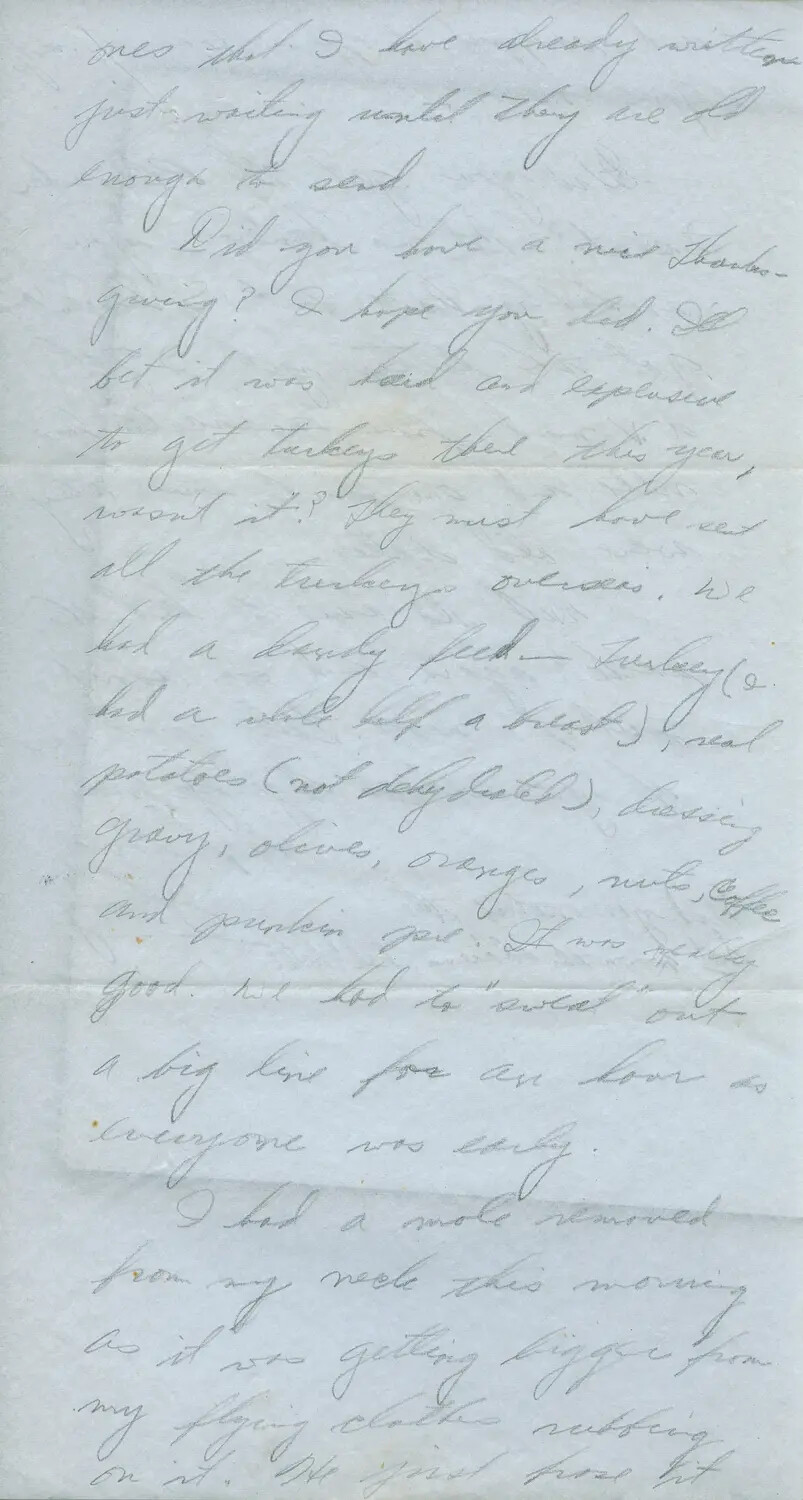 ones that I have already written
just waiting until they are old
enough to send
Did you have a nice Thanks-
giving? I hope you did. I'll
bet it was hard and expensive
to get turkeys there this year,
wasn't it? They must have sent
all the turkeys overseas. We
had a dandy feed — Turkey (I
had a whole half a breast), real
potatoes (not dehydrated), dressing
gravy, olives, oranges, nuts, coffee
and punkin pie. It was really
good. We had to "sweat" out
a big line for an hour as
everyone was early.
I had a mole removed
from my neck this morning
as it was getting bigger from
my flying clothes rubbing
on it. He just froze it